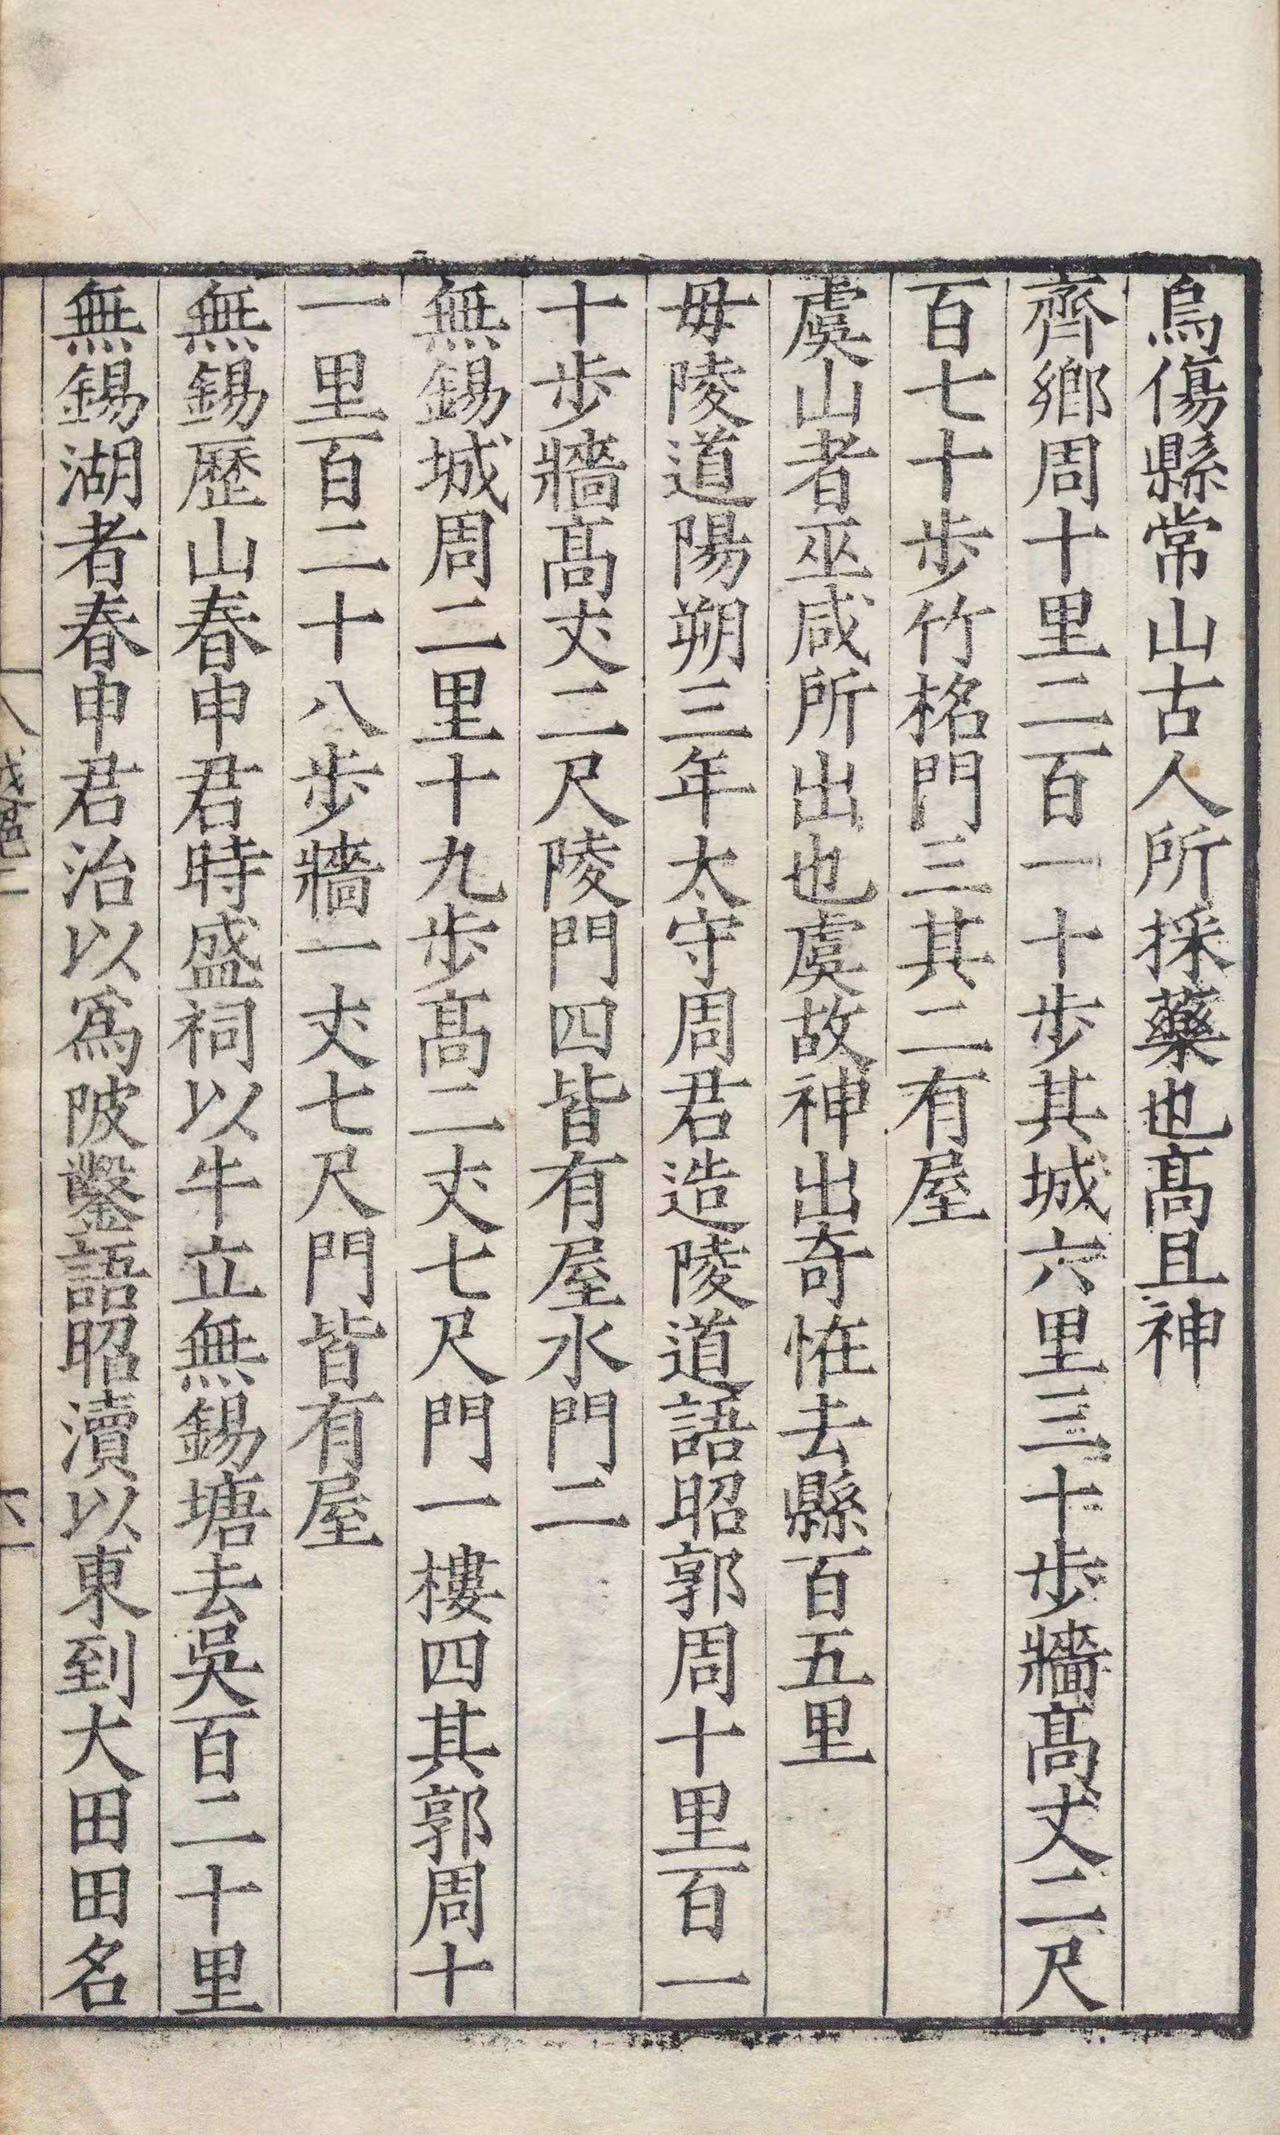 烏傷縣常山古人所採藥也髙且神
齊鄉周十里二百一十歩其城六里三十歩牆髙丈二尺
百七十歩竹格門三其二有屋
虞山者巫咸所出也虞故神出奇恠去縣百五里
毋陵道陽朔三年太守周君造陵道語昭郭周十里百一
十歩牆髙丈二尺陵門四皆有屋水門二
無錫城周二里十九歩髙二丈七尺門一樓四其郭周十
一里百二十八歩牆一丈七尺門皆有屋
無錫歷山春申君時盛祠以牛立無錫塘去吳百二十里
無錫湖者春申君治以爲陂鑿語昭瀆以東到大田田名